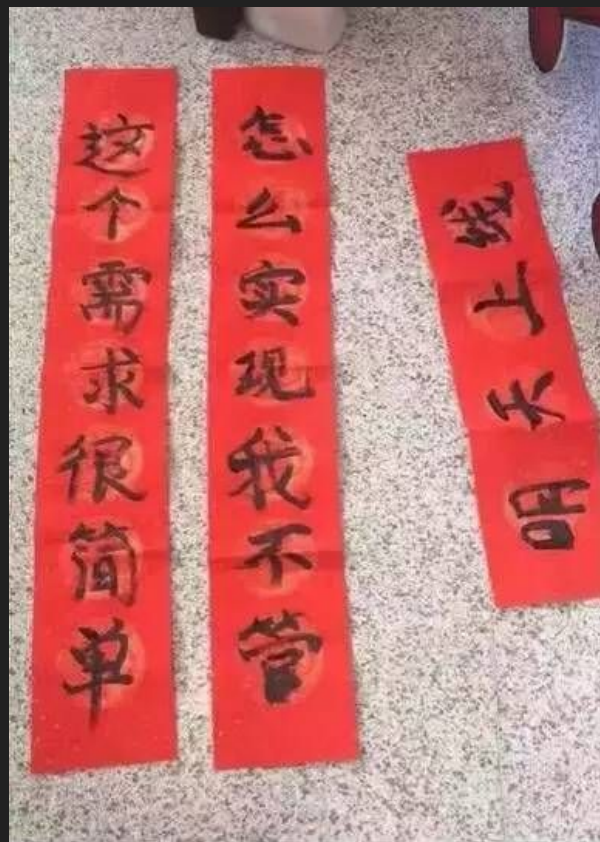 这个需求很简单
怎么实现我不管
明天上线